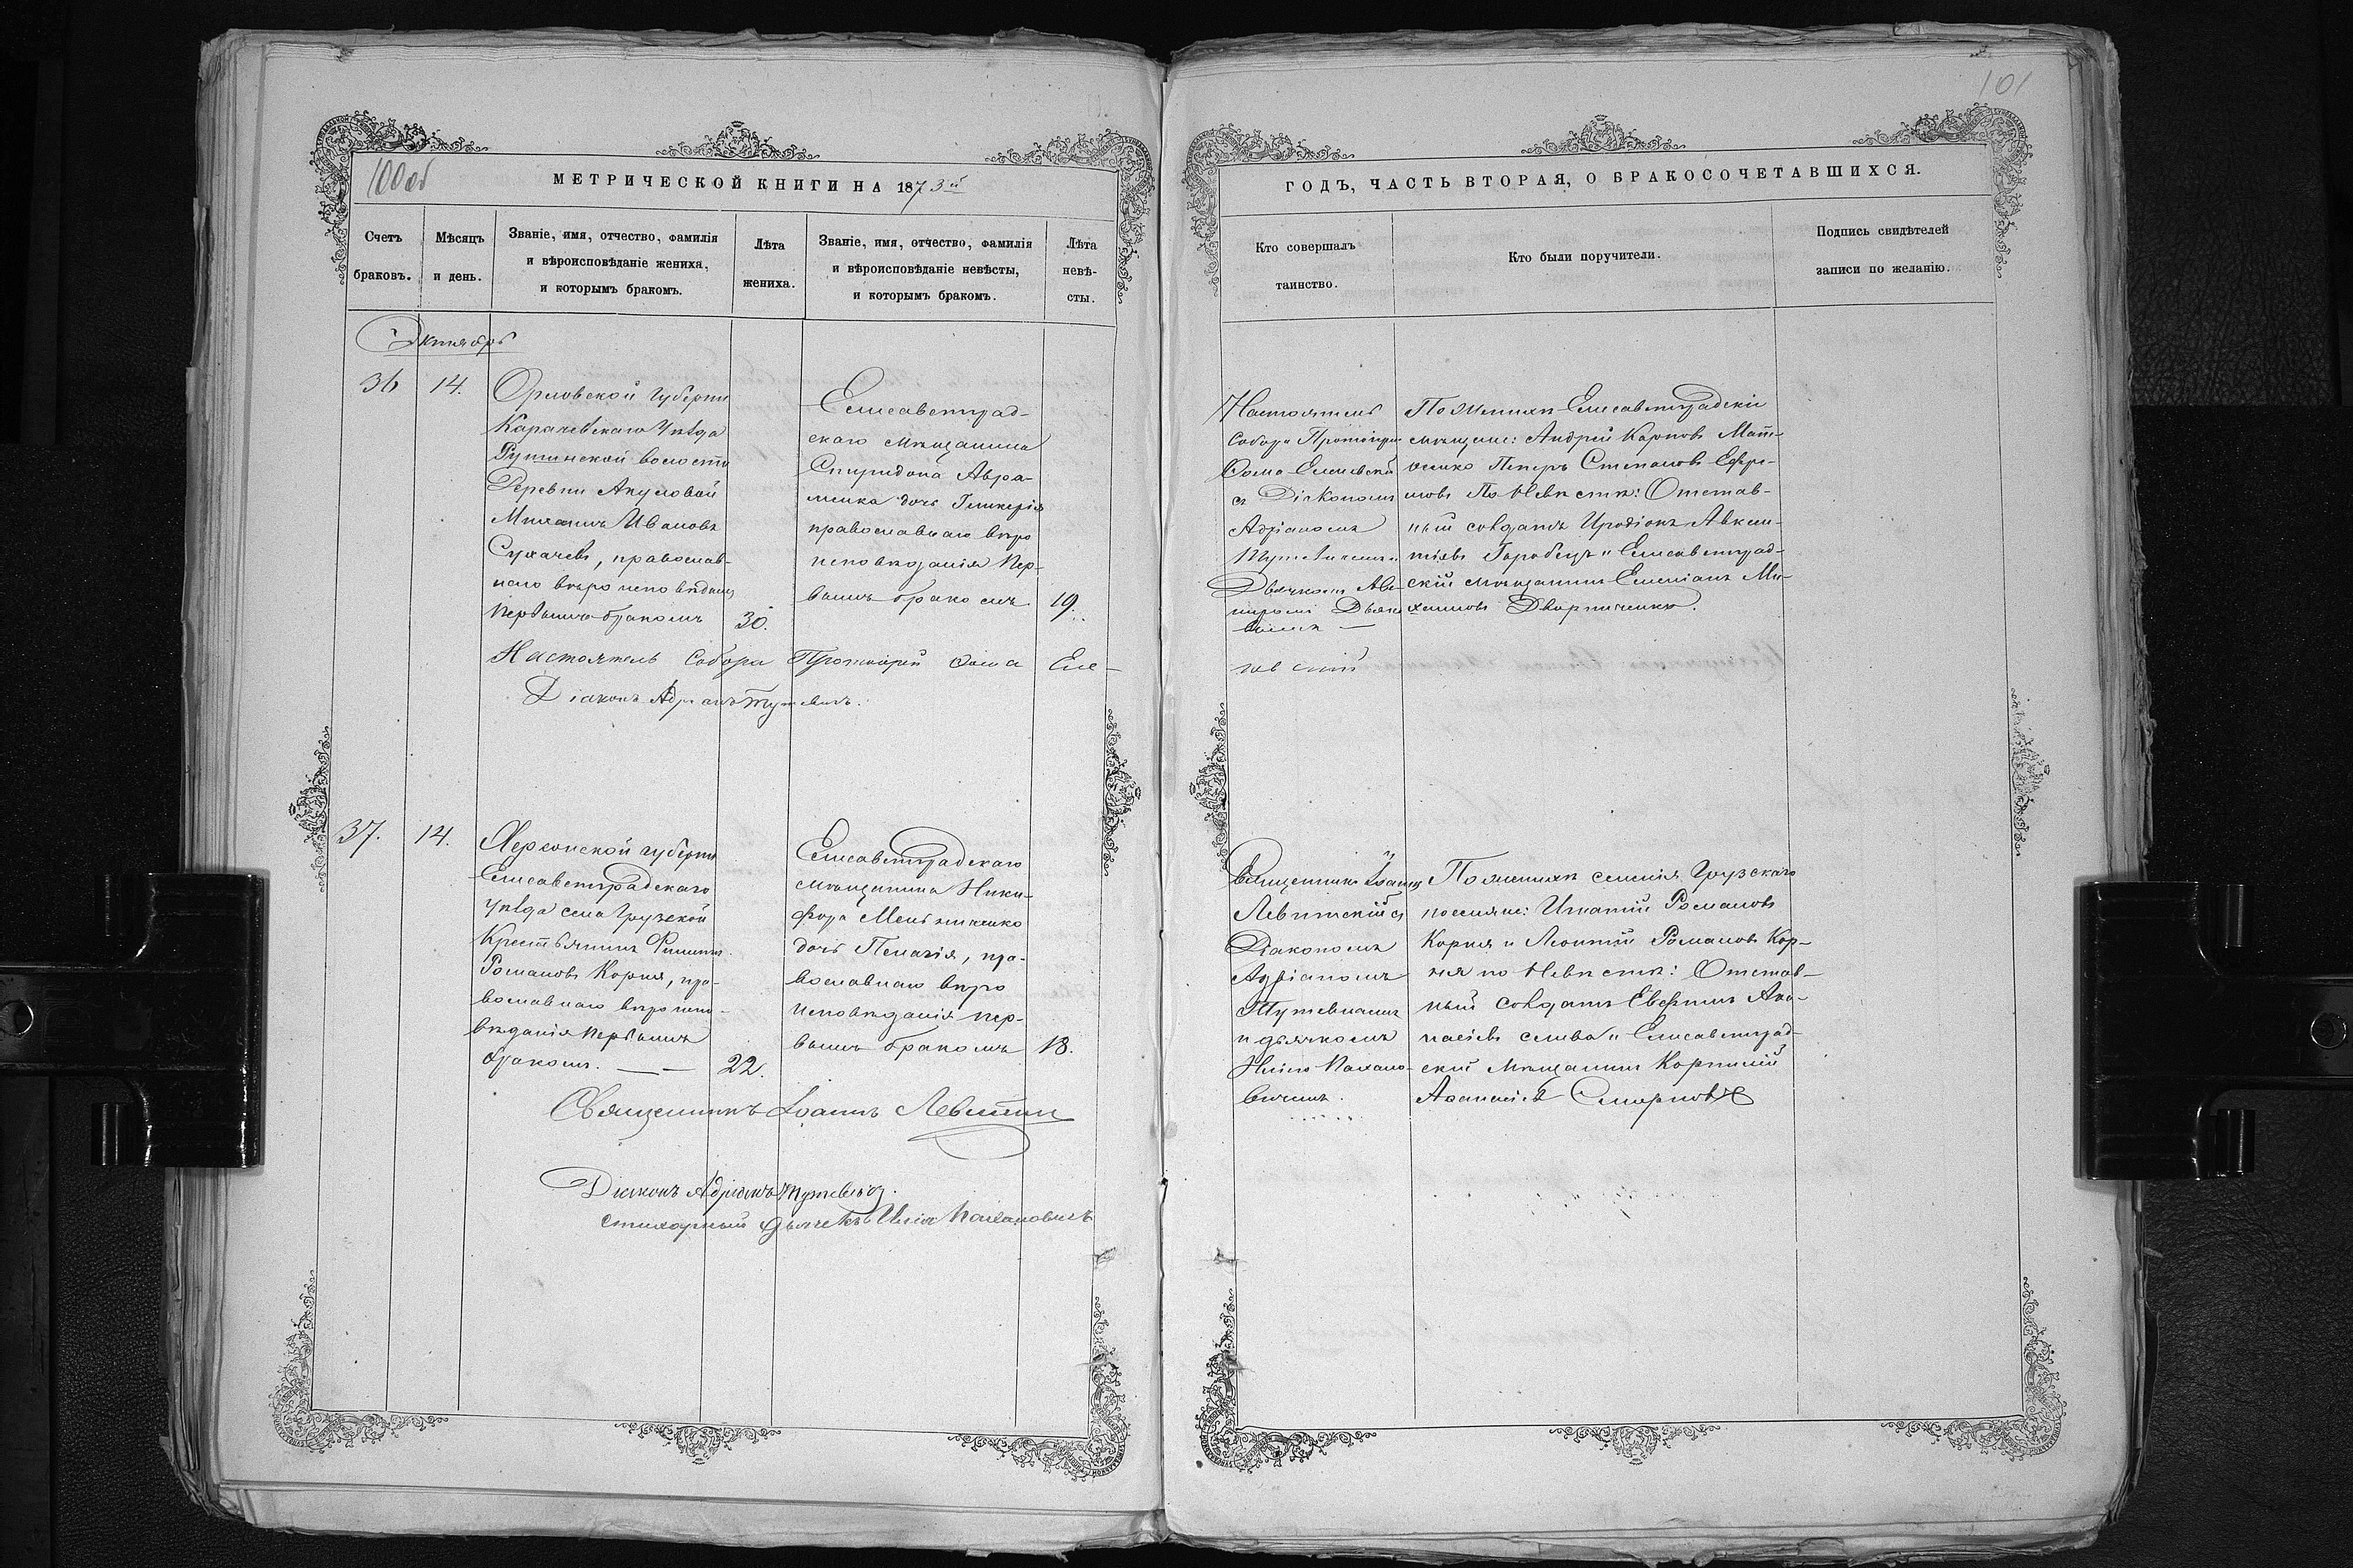 100 об
МЕТРИЧЕСКОЙ КНИГИ НА 1873й
Счетъ
браковъ.
Мѣсяцъ
и день.
Званіе, имя, отчество, фамилія
и вѣроисповѣданіе жениха,
и которымъ бракомъ.
Лѣта
жениха.
Званіе, имя, отчество, фамилія
и вѣроисповѣданіе невѣсты,
и которымъ бракомъ.
Лѣта
невѣ-
сты.
Октябрь
36
14.
Орловской губерніи
Карачевскаго Уѣзда
волости
Деревни Акуловой
Михаилъ Ивановъ
Сухачевъ, православ-
наго вѣроисповѣданія
первымъ бракомъ
30.
Елисаветград-
скаго мѣщанина
Спиридона Авра-
менка дочь Гликерія
православнаго вѣро
исповѣданія пер-
вымъ бракомъ
19.
Настоятель Собора Протоіерей Ѳома Еле-
Діаконъ Адріанъ Тутевичъ.
37.
14.
Херсонской губерніи
Елисаветградскаго
уѣзда села Грузской
Крестьянинъ Филиппъ
Романовъ Корня, пра-
вославнаго вѣроиспо-
вѣданія первымъ
бракомъ.
22.
Елисаветградскаго
мѣщанина Ники-
фора Мельниченко
дочь Пелагія, пра-
вославнаго вѣро
исповѣданія пер-
вымъ бракомъ
18.
Священникъ Іоаннъ Левитскій
Діаконъ Адріанъ Тутевичъ.
стихарный дьячекъ Илія Пахановичъ
101
ГОДЪ, ЧАСТЬ ВТОРАЯ, О БРАКОСОЧЕТАВШИХСЯ.
Кто совершалъ
таинство.
Кто были поручители.
Подпись свидѣтелей
записи по желанію.
Настоятель
Собора Протоіерей
Ѳома Еленевскій
съ Діакономъ
Адріаномъ
Тутевичемъ и
Дьячкомъ
По женихѣ Елисаветградскіе
мѣщане: Андрей Карповъ Мат-
Петръ Степановъ Ефре-
мовъ По Невѣстѣ: Отстав-
ный солдатъ Иродіонъ Авксен-
тіевъ Горобецъ и Елисаветград-
скій мѣщанинъ Емеліанъ Ми-
хаиловъ Дворниченко.
невскій
Священникъ Іоаннъ
Левитскій съ
Діакономъ
Адріаномъ
Тутевичемъ
и дьячкомъ
Иліею Пахано-
вичемъ.
По женихѣ селенія Грузскаго
поселяне: Игнатій Романовъ
Корня и Леонтій Романовъ Кор-
ня по Невѣстѣ: Отстав-
ный солдатъ Евфимъ Аѳа-
насіевъ Слива и Елисаветград-
скій Мѣщанинъ Корнилій
Аѳанасіевъ Смирновъ